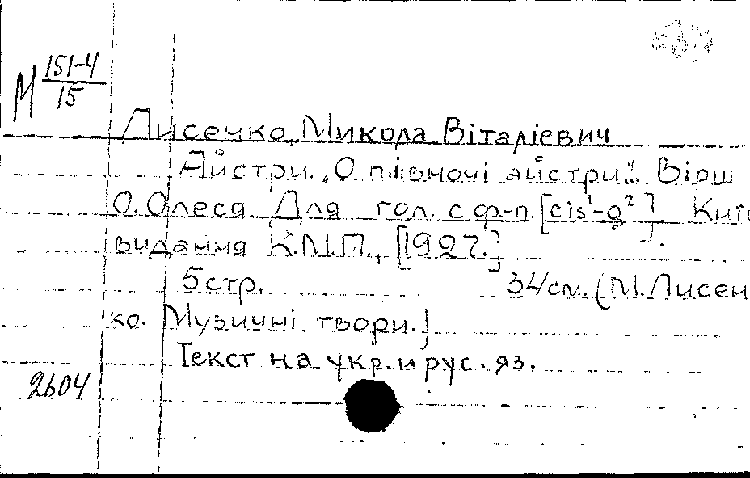 М 151-4
15
Лисенко, Микола Віталієвич
Айстри. „О півночі айстри". Вірш
О. Олеся. Для гол. с ф-п [cis¹-g²]. Київ
видання К.М.П., [1927.]
5 стр. 34 см. (М. Лисен-
ко. Музичні твори.)
Текст на укр. и рус. яз.
2604